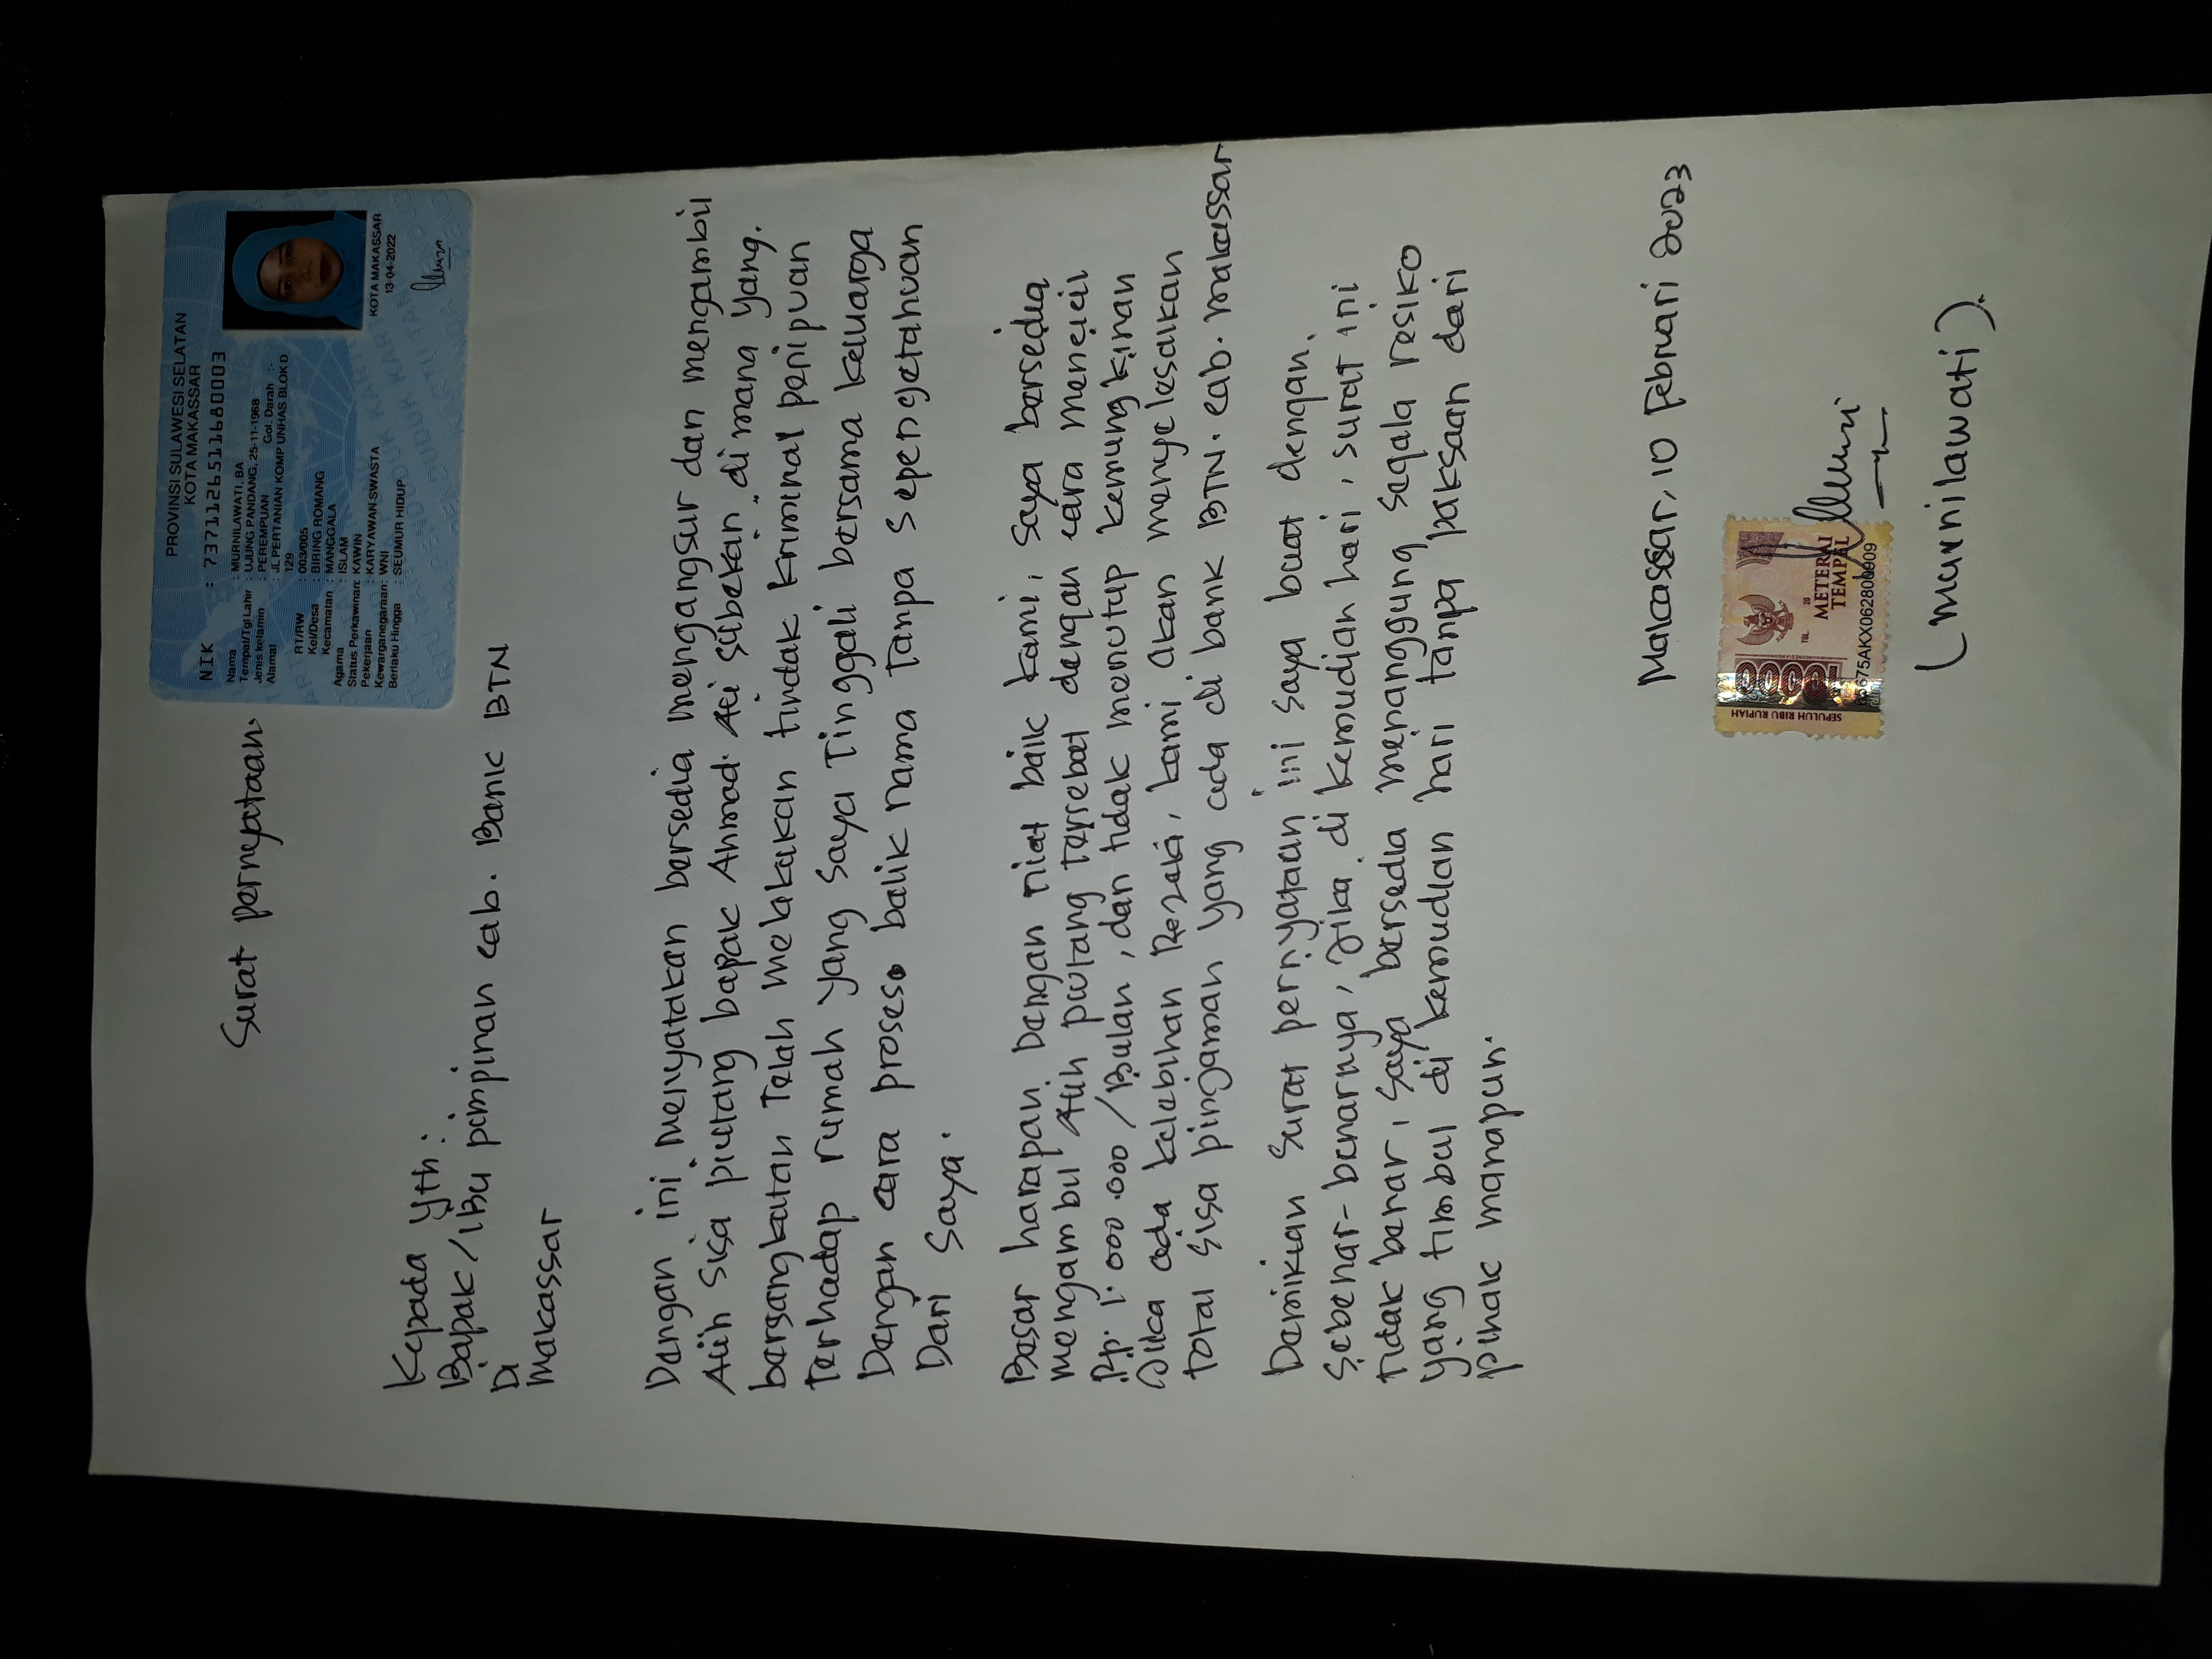 PROVINSI SULAWESI SELATAN
KOTA MAKASSAR
NIK : 7371126511680003
Nama : MURNILAWATI, BA
Tempat/Tgl Lahir : UJUNG PANDANG, 25-11-1968
Jenis kelamin : PEREMPUAN Gol. Darah :-
Alamat : JL PERTANIAN KOMP UNHAS BLOK D
129
RT/RW : 003/005
Kel/Desa : BIRING ROMANG
Kecamatan : MANGGALA
Agama : ISLAM
Status Perkawinan: KAWIN
Pekerjaan : KARYAWAN SWASTA
Kewarganegaraan: WNI
Berlaku Hingga : SEUMUR HIDUP
KOTA MAKASSAR
13-04-2022
Surat pernyataan
Kepada Yth :
Bapak/Ibu pimpinan cab. Bank BTN
Di
Makassar
Dengan ini menyatakan bersedia mengangsur dan mengambil
Alih sisa piutang bapak Ahmad. di mana yang.
bersangkutan Telah melakukan tindak kriminal penipuan
Terhadap rumah yang saya Tinggali bersama keluarga
Dengan cara proses balik nama Tanpa sepengetahuan
Dari saya.
Besar harapan Dengan niat baik kami, saya bersedia
mengambil Alih piutang tersebut dengan cara mencicil
Rp. 1.000.000 /Bulan, dan tidak menutup kemungkinan
Jika ada kelebihan Rezeki, kami akan menyelesaikan
total sisa pinjaman yang ada di bank BTN. cab. makassar
Demikian surat pernyataan ini saya buat dengan.
sebenar-benarnya, Jika di kemudian hari, surat ini
tidak benar, saya bersedia menanggung segala resiko
yang timbul di kemudian hari tanpa paksaan dari
pihak manapun.
Makassar, 10 Februari 2023
SEPULUH RIBU RUPIAH
10000
TGL. 20
METERAI
TEMPEL
(murnilawati).